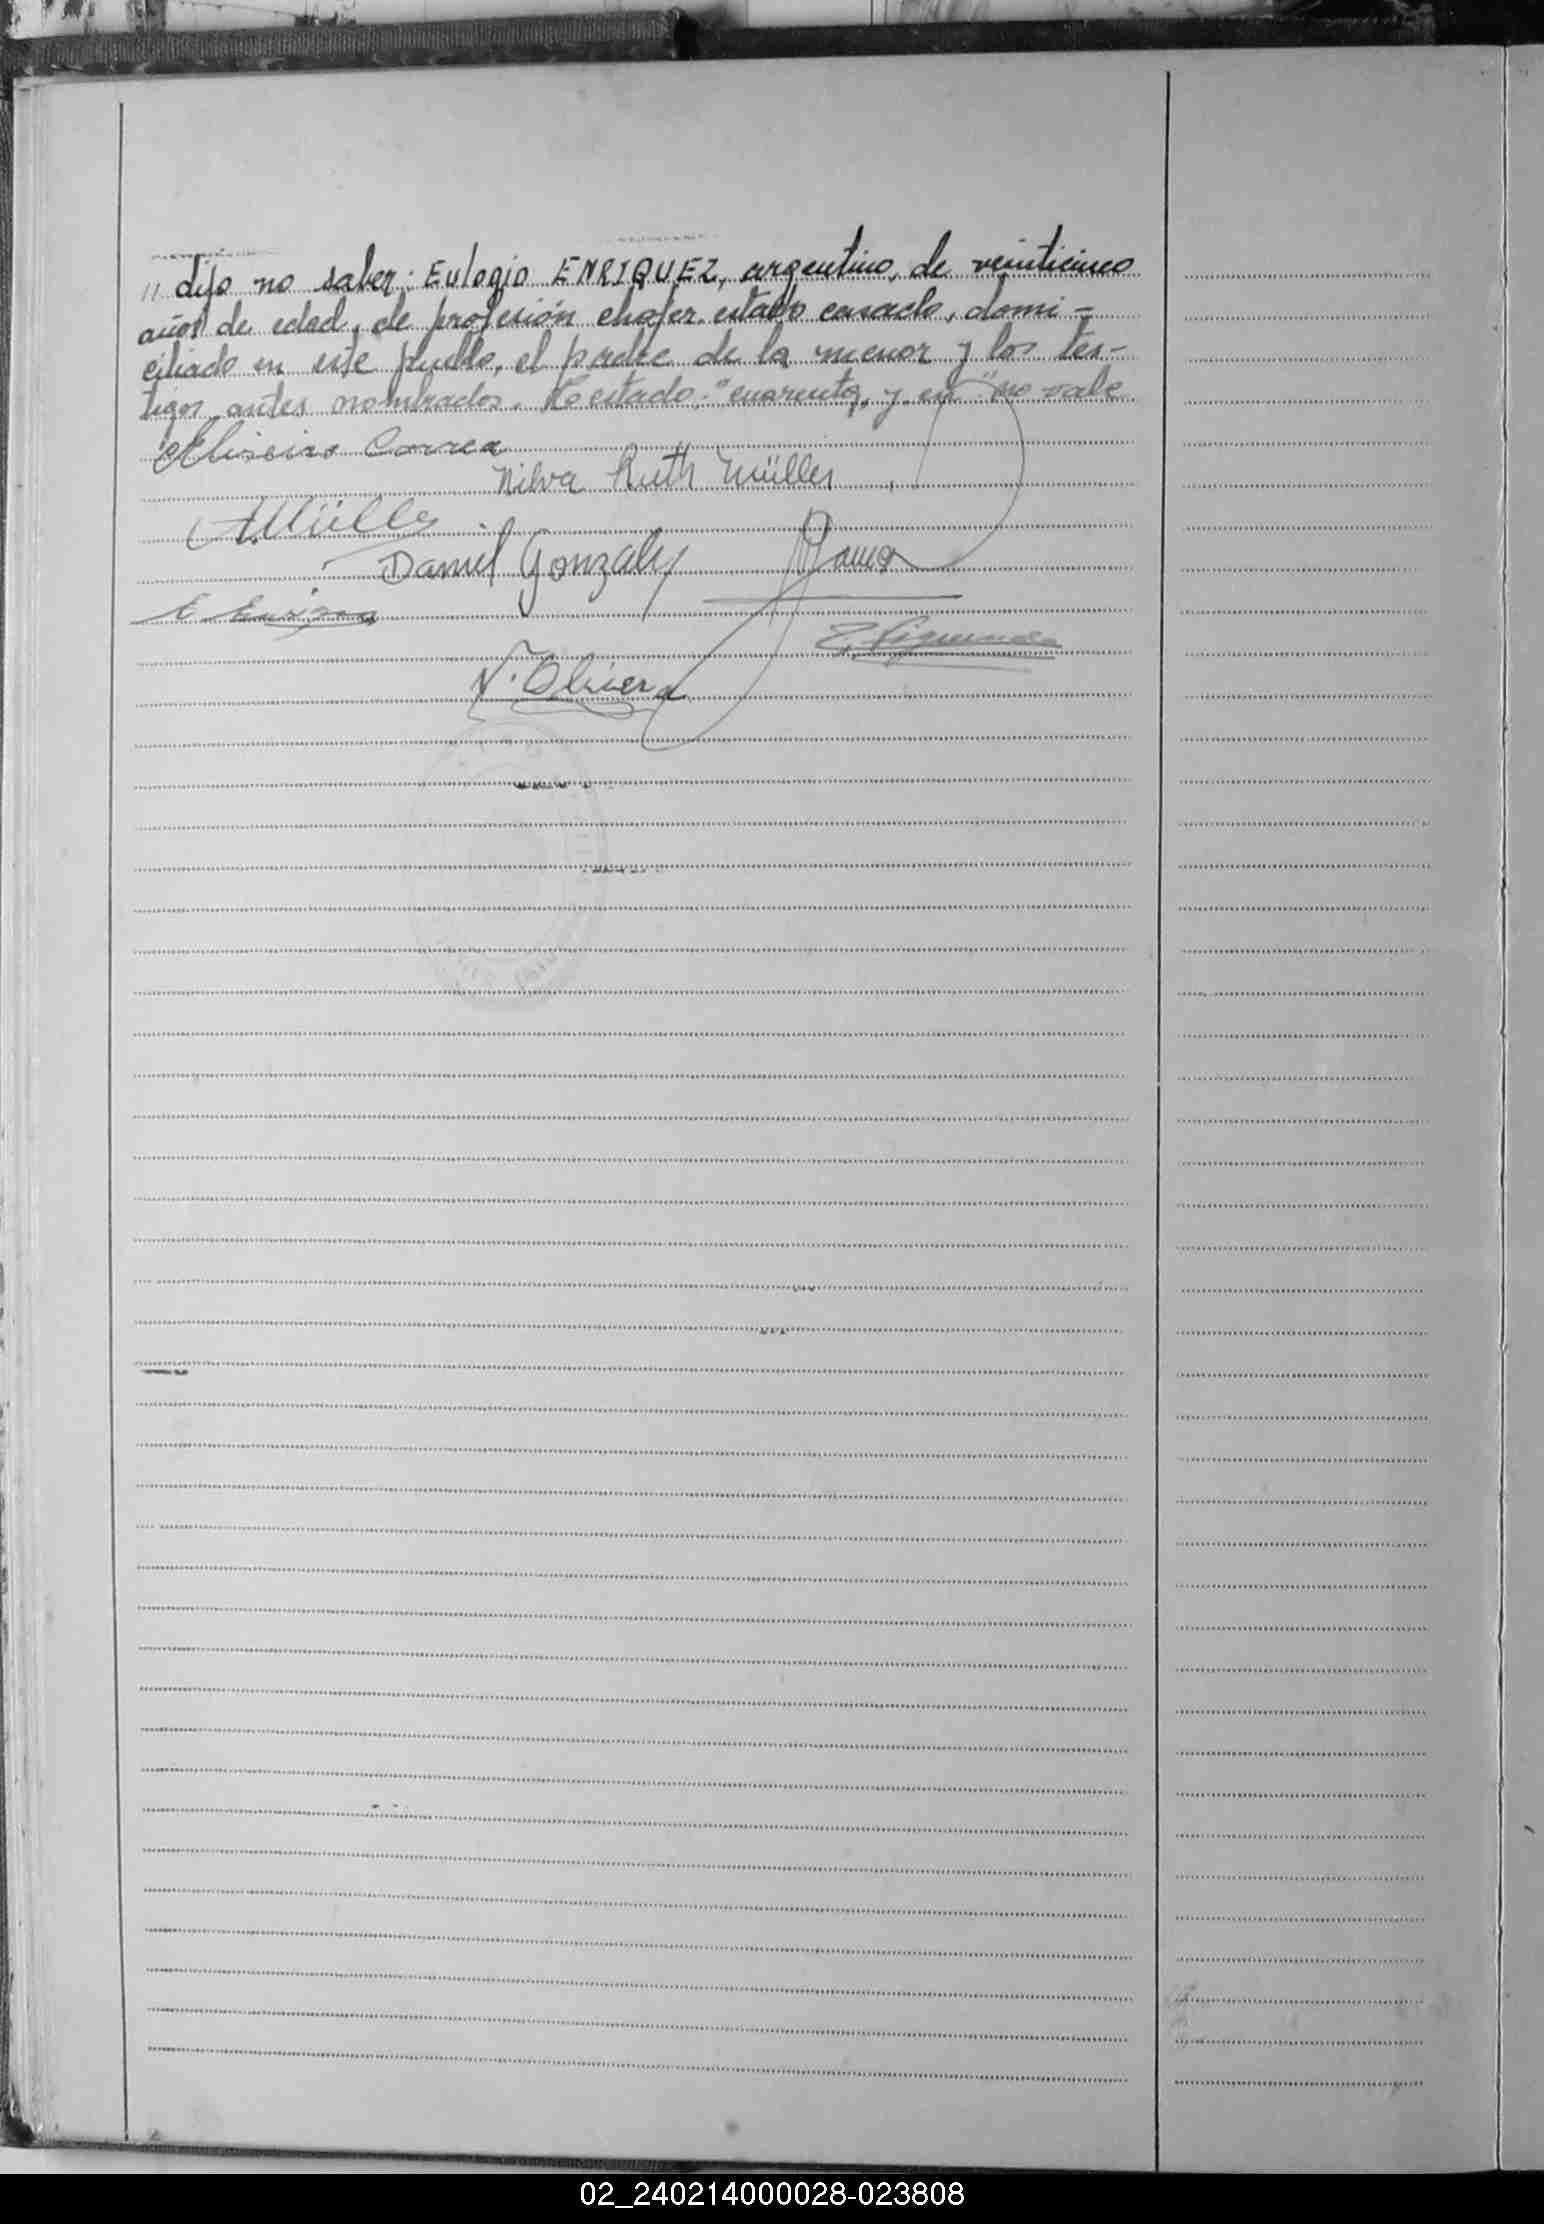 " dijo no saber: Eulogio ENRIQUEZ, argentino, de veinticinco
años de edad, de profesión chofer, estado casado, domi =
ciliado en este pueblo, el padre de la menor y los tes-
tigos antes nombrados. Testado: "cuarenta, y en" no vale
Eliseiro Correa
Nilva Ruth Müller
A. Müller
Daniel Gonzalez
E. Enriquez
E. Figueredo
N. Olivera
02_240214000028-023808